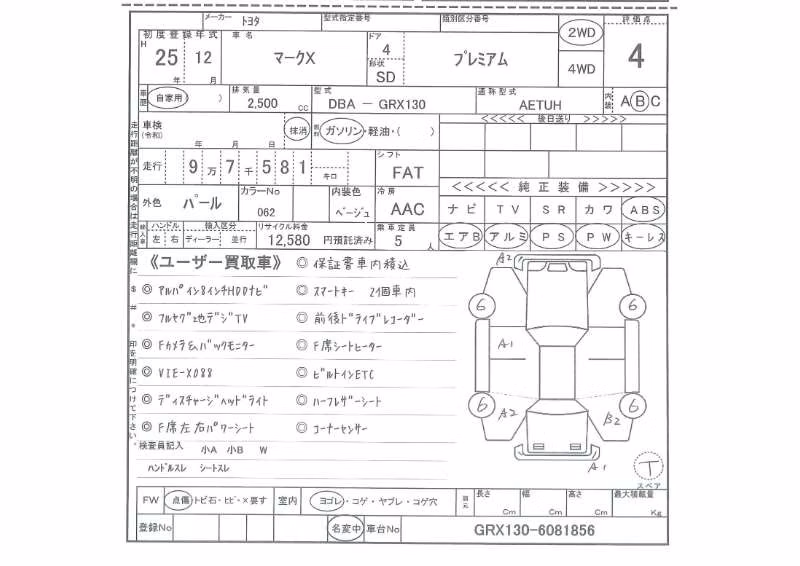 メーカー トヨタ 型式指定番号 類別区分番号 評価点
初度登録年式 車名 ドア 2WD
H 25 12 マークX 4 プレミアム 4
年 月 形状 SD 4WD
車歴 自家用 ) 排気量 2,500 cc 型式 DBA － GRX130 通称型式 AETUH 内装 A B C
車検 (令和) 年 月 日 抹消 燃料 ガソリン・軽油・( ) <<<<< 後日送り >>>>>
走行 9万7千581 キロ シフト FAT
外色 パール カラーNo 062 内装色 ベージュ 冷房 AAC <<<<< 純正装備 >>>>>
ナビ TV SR カワ ABS
輸入車 ハンドル 左 右 輸入区分 ディーラー・並行 リサイクル料金 12,580 円預託済み 乗車定員 5 人 エアB アルミ PS PW キーレス
走行距離が不明の場合は走行距離欄に $ # * 印を明確につけて下さい。
《ユーザー買取車》 ◎ 保証書車内積込
◎ アルパイン8インチHDDナビ ◎ スマートキー 2個車内
◎ フルセグ地デジTV ◎ 前後ドライブレコーダー
◎ Fカメラ&バックモニター ◎ F席シートヒーター
◎ VIE-X088 ◎ ビルトインETC
◎ ディスチャージヘッドライト ◎ ハーフレザーシート
◎ F席左右パワーシート ◎ コーナーセンサー
検査員記入 小A 小B W
ハンドルスレ シートスレ
A2
6 6
A1
6 6
A2 B2
A1
T
スペア
FW 点傷・トビ石・ヒビ・×要す 室内 ヨゴレ・コゲ・ヤブレ・コゲ穴 長さ Cm 幅 Cm 高さ Cm 最大積載量 Kg
登録No 名変中 車台No GRX130-6081856